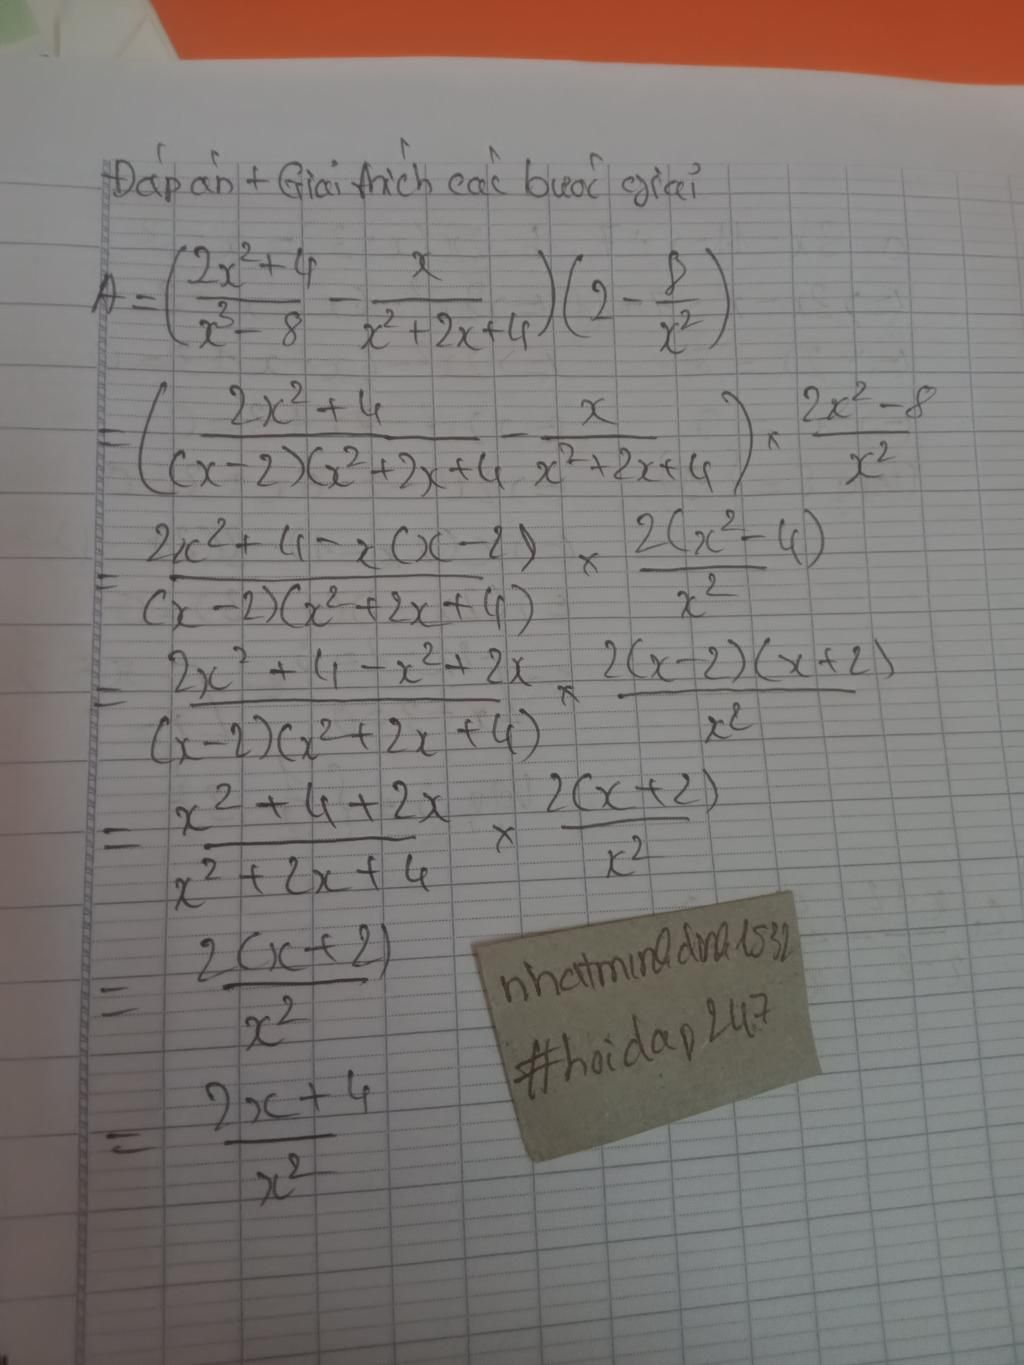 Đáp án + Giải thích các bước giải
A = ( (2x² + 4)/(x³ - 8) - x/(x² + 2x + 4) ) ( 2 - 8/x² )
= ( (2x² + 4)/((x - 2)(x² + 2x + 4) - x/(x² + 2x + 4) ) × (2x² - 8)/x²
= (2x² + 4 - x(x - 2))/((x - 2)(x² + 2x + 4)) × 2(x² - 4)/x²
= (2x² + 4 - x² + 2x)/((x - 2)(x² + 2x + 4)) × 2(x - 2)(x + 2)/x²
= (x² + 4 + 2x)/(x² + 2x + 4) × 2(x + 2)/x²
= 2(x + 2)/x²
= (2x + 4)/x²
#hoidap247